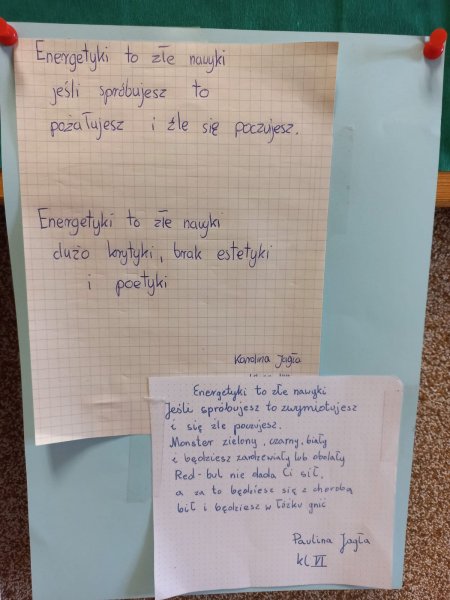 Energetyki to złe nawyki
jeśli spróbujesz to
pożałujesz i źle się poczujesz.
Energetyki to złe nawyki
dużo krytyki, brak estetyki
i poetyki
Karolina Jagła
Energetyki to złe nawyki
Jeśli spróbujesz to zwymiotujesz
i się źle poczujesz.
Monster zielony, czarny, biały
i będziesz zardzewiały lub obolały
Red-bul nie dada Ci sił,
a za to będziesz się z chorobą
bił i będziesz w łóżku gnić
Paulina Jagła
kl VI